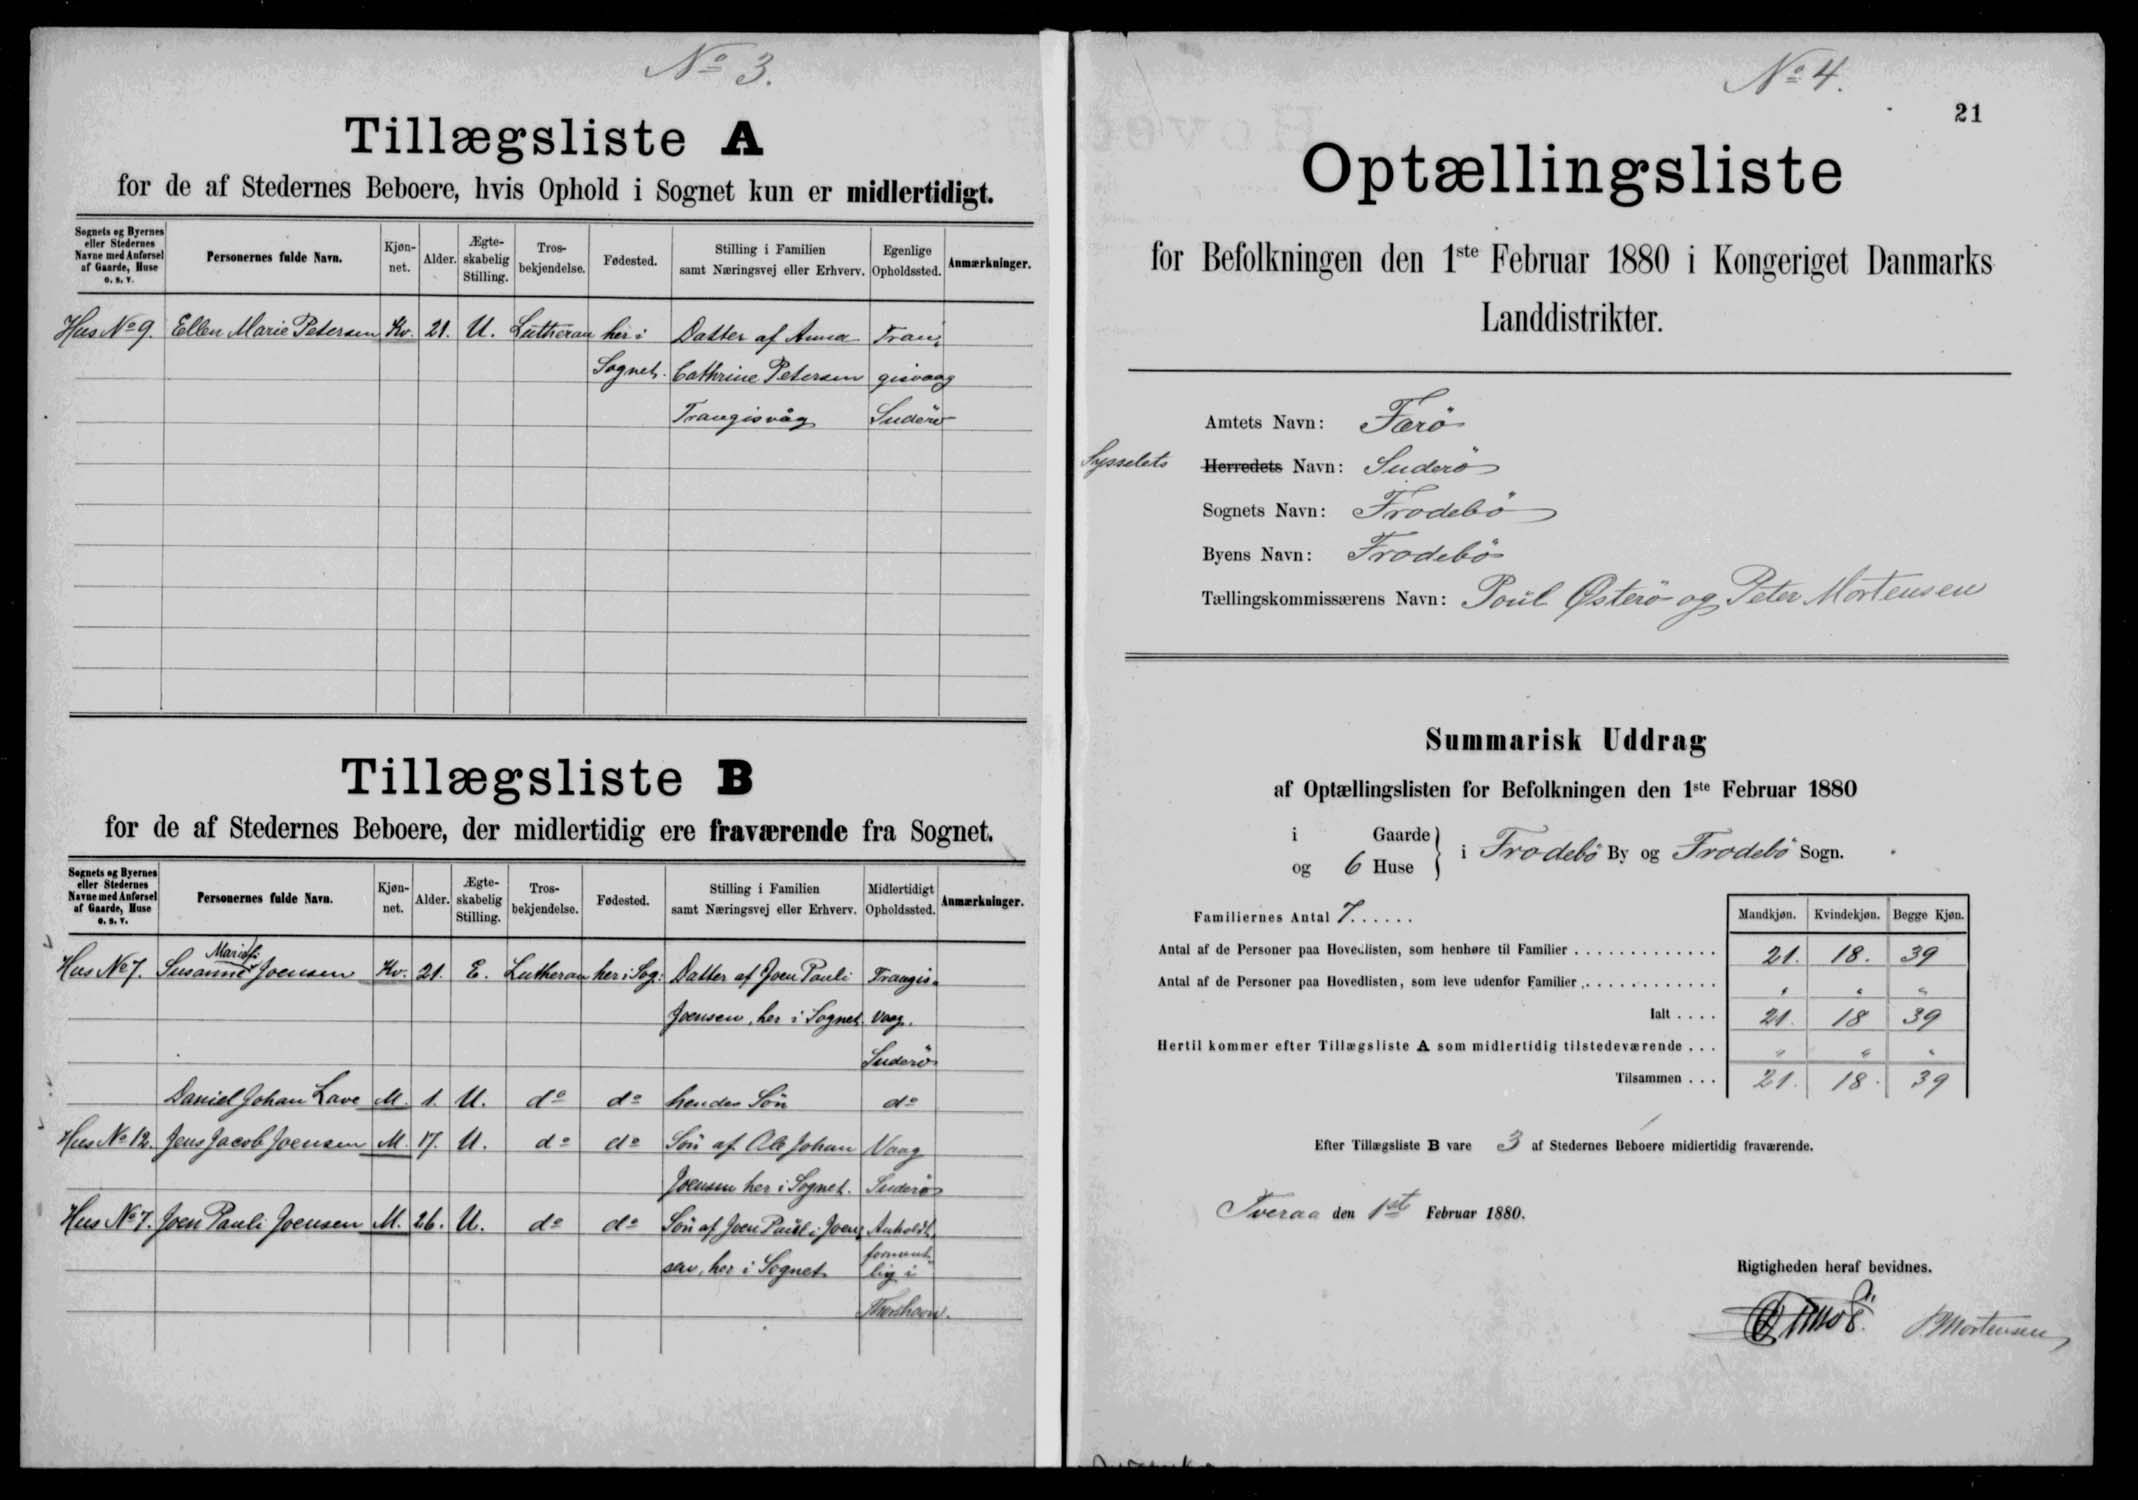 No 3.
Tillægsliste A
for de af Stedernes Beboere, hvis Ophold i Sognet kun er midlertidigt.
Sognets og Byernes eller Stedernes Navne med Anførsel af Gaarde, Huse o. s. v. | Personernes fulde Navn. | Kjøn-net. | Alder. | Ægte-skabelig Stilling. | Tros-bekjendelse. | Fødested. | Stilling i Familien samt Næringsvej eller Erhverv. | Egenlige Opholdssted. | Anmærkninger.
Hus No 9. Ellen Marie Petersen Kv. 21. U. Lutheran her i Datter af Anna Tran-
Sognet. Cathrine Petersen gisvaag
Trangisvåg Suderö
Tillægsliste B
for de af Stedernes Beboere, der midlertidig ere fraværende fra Sognet.
Sognets og Byernes eller Stedernes Navne med Anførsel af Gaarde, Huse o. s. v. | Personernes fulde Navn. | Kjøn-net. | Alder. | Ægte-skabelig Stilling. | Tros-bekjendelse. | Fødested. | Stilling i Familien samt Næringsvej eller Erhverv. | Midlertidigt Opholdssted. | Anmærkninger.
Hus No 7. Susanne Joensen Kv. 21. E. Lutheran her i Sog: Datter af Joen Pauli Trangis-
Joensen, her i Sognet vaag.
Suderö
Daniel Johan Lave M. 1. U. do do hendes Sön do
Hus No 12. Jens Jacob Joensen M. 17. U. do do Sön af Ole Johan Vaag
Joensen her i Sognet. Suderö
Hus No 7. Joen Pauli Joensen M. 26. U. do do Sön af Joen Pauli Joen- Anholdt,
sen, her i Sognet lig i
Thorshavn.
No 4.
21
Optællingsliste
for Befolkningen den 1ste Februar 1880 i Kongeriget Danmarks
Landdistrikter.
Amtets Navn: Færö
Sysselets Herredets Navn: Suderö
Sognets Navn: Frodebö
Byens Navn: Frodebö
Tællingskommissærens Navn: Poul Østerö og Peter Mortensen
Summarisk Uddrag
af Optællingslisten for Befolkningen den 1ste Februar 1880
i Gaarde
og 6 Huse } i Frodebö By og Frodebö Sogn.
Mandkjøn. Kvindekjøn. Begge Kjøn.
Familiernes Antal 7......
Antal af de Personer paa Hovedlisten, som henhøre til Familier . . . . 21. 18. 39
Antal af de Personer paa Hovedlisten, som leve udenfor Familier . . . . " " "
Ialt . . . . 21. 18 39
Hertil kommer efter Tillægsliste A som midlertidig tilstedeværende . . . " " "
Tilsammen . . . 21. 18. 39
Efter Tillægsliste B vare 3 af Stedernes Beboere midlertidig fraværende.
Tveraa den 1ste Februar 1880.
Rigtigheden heraf bevidnes.
P. Mortensen